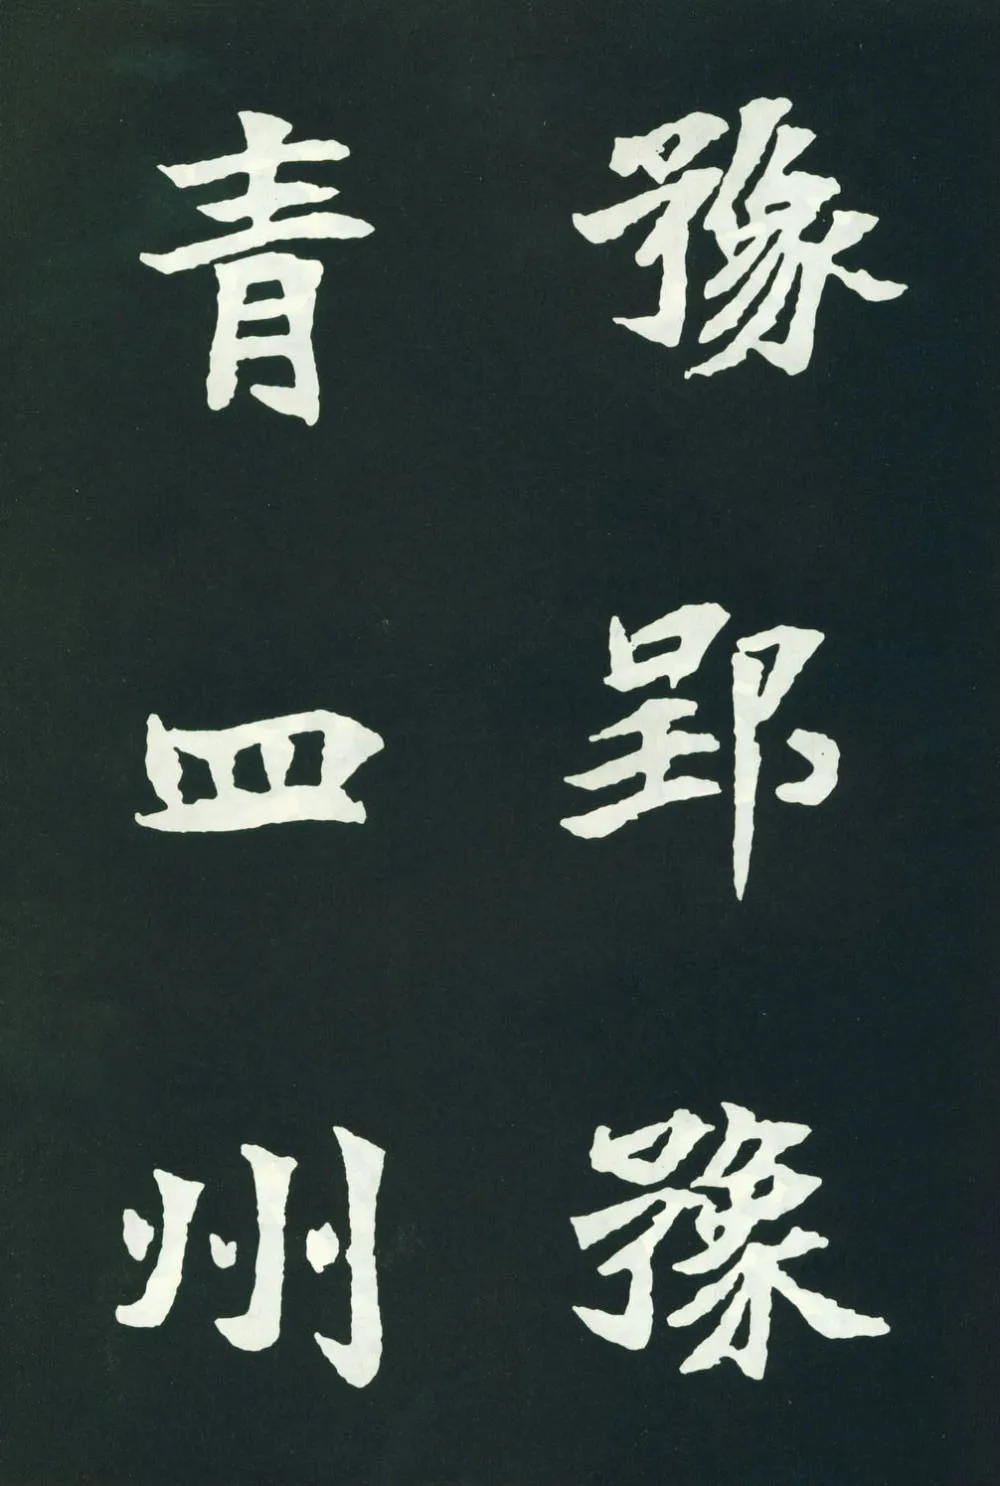 豫郢豫
青四州